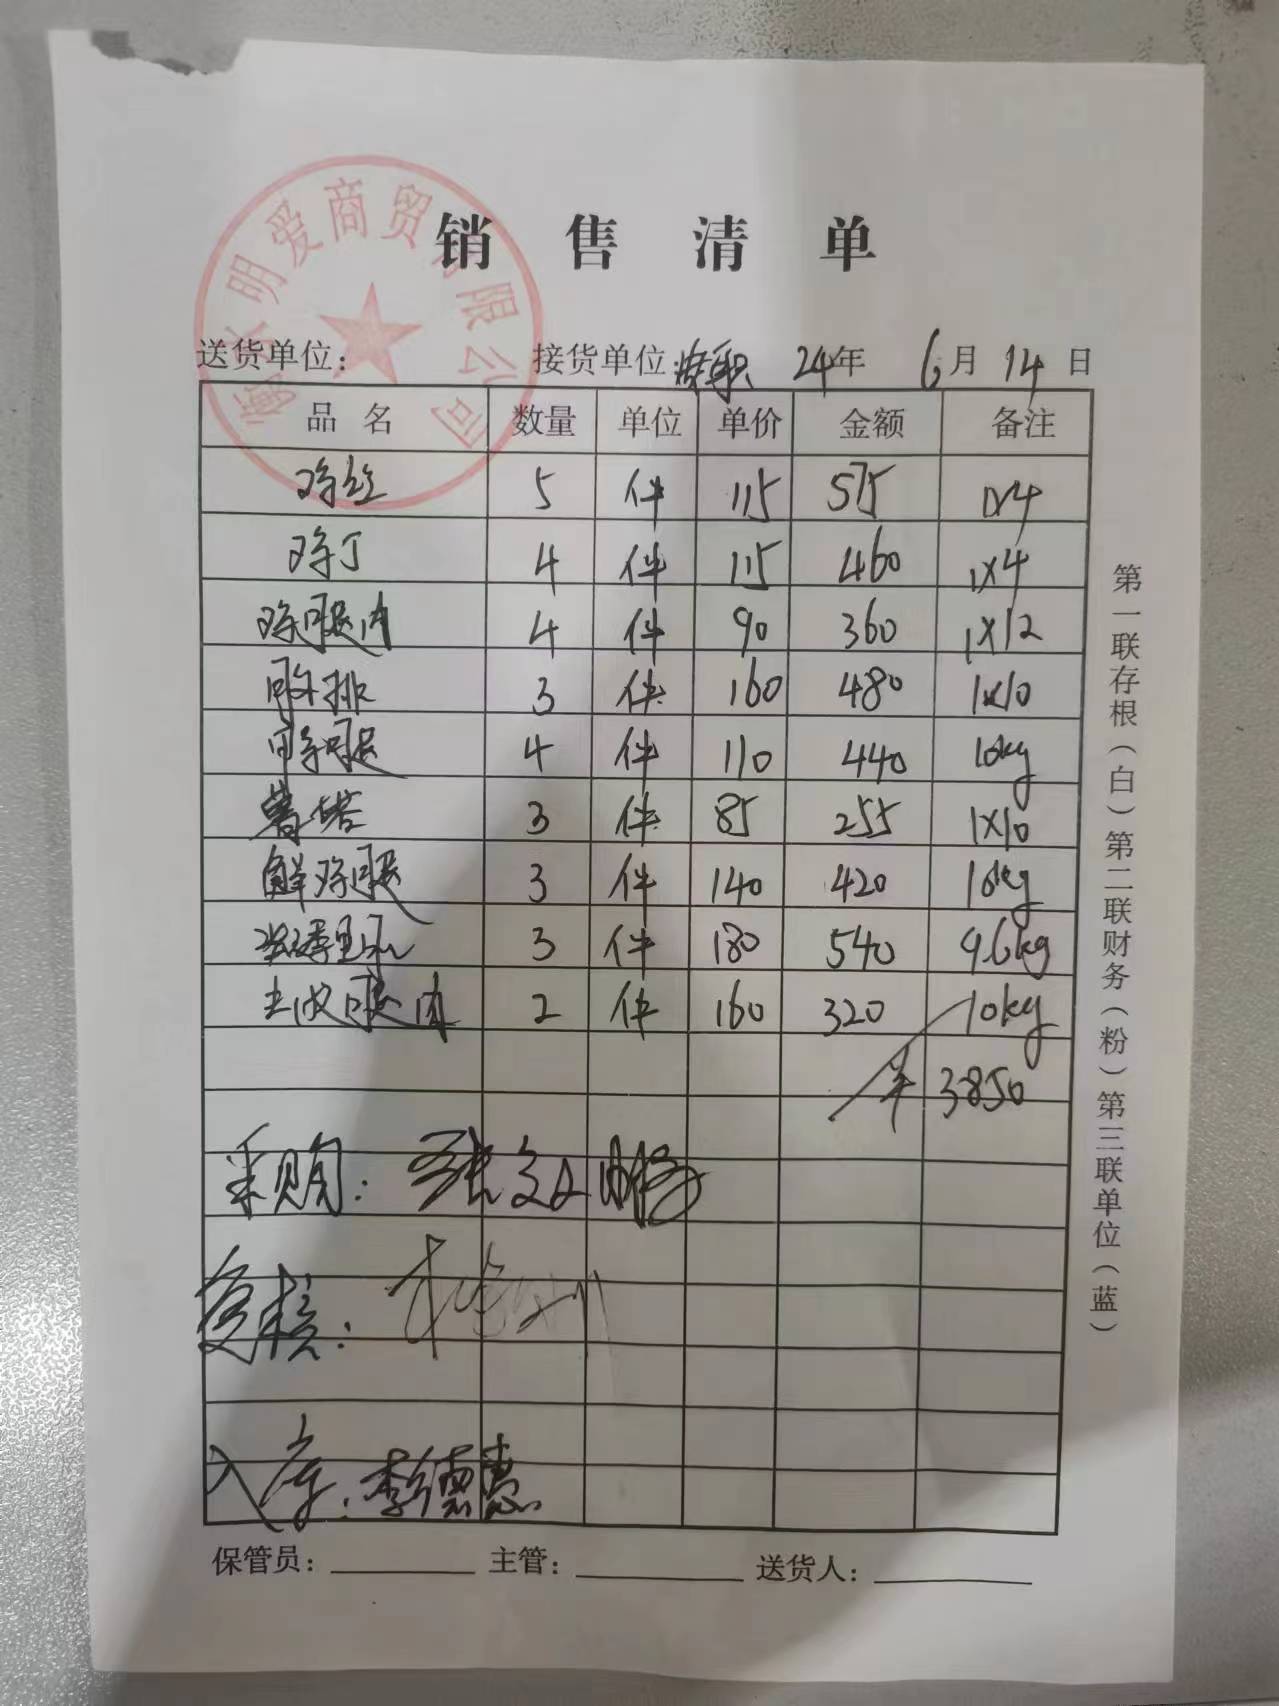 衡水明爱商贸有限公司
销售清单
送货单位： 接货单位： 24年 6月 14日
品名 数量 单位 单价 金额 备注
鸡丝 5 件 115 575 1×4
鸡丁 4 件 115 460 1×4
鸡腿肉 4 件 90 360 1×12
排 3 件 160 480 1×10
腿 4 件 110 440 10kg
薯塔 3 件 85 255 1×10
鲜鸡腿 3 件 140 420 10kg
3 件 180 540 9.6kg
去皮腿肉 2 件 160 320 10kg
¥3850
采购：张文
复核：
入库：李德惠
保管员： 主管： 送货人：
第一联存根（白）第二联财务（粉）第三联单位（蓝）